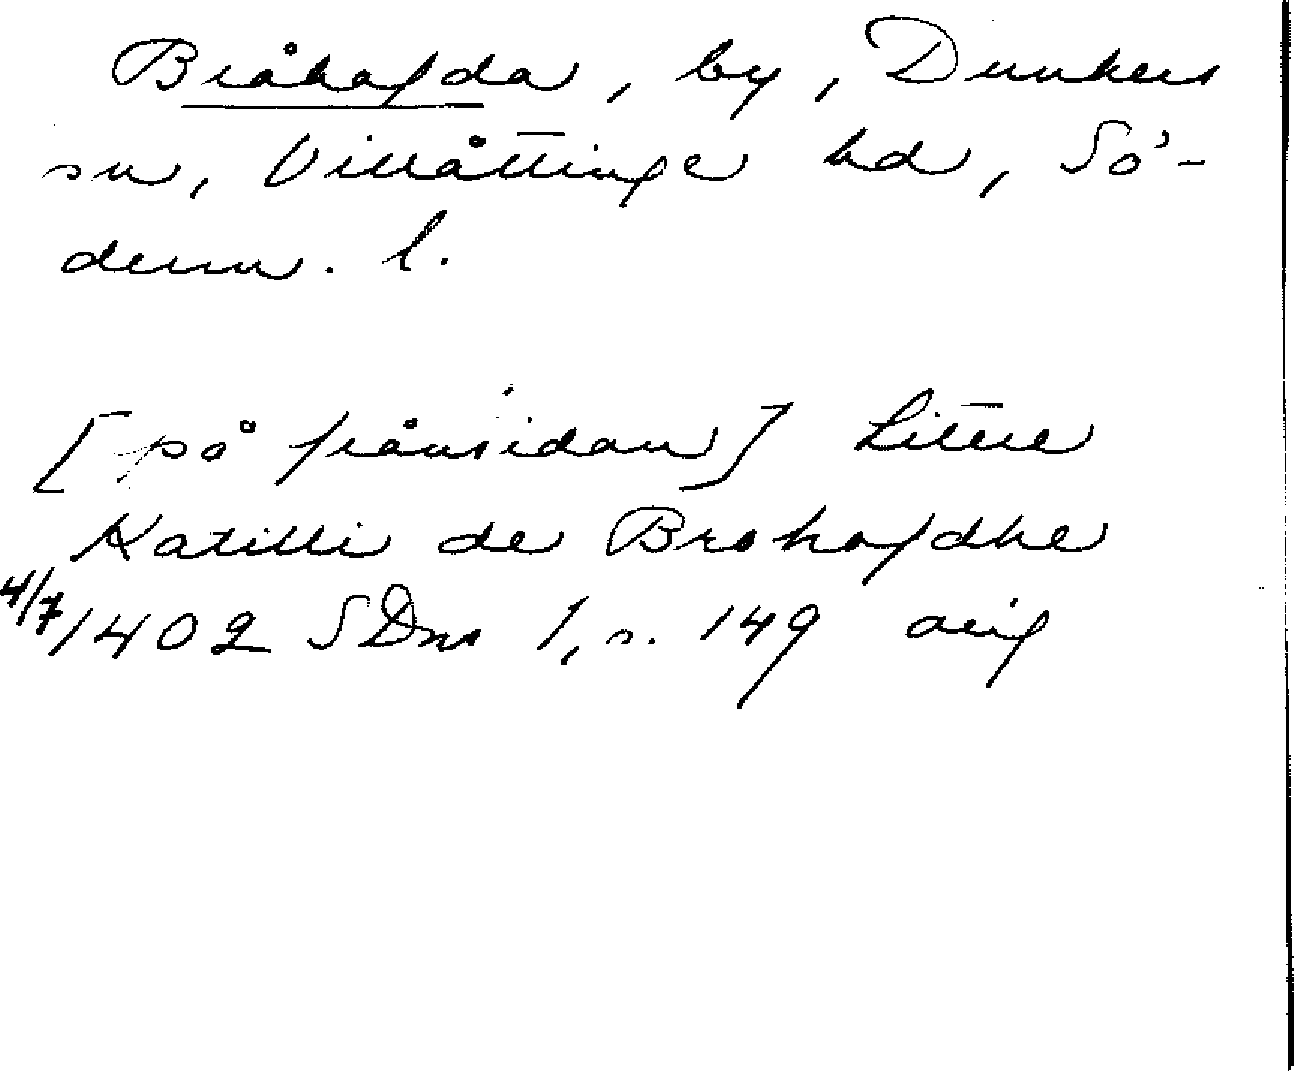 Bråhovda, by, Dunkers
sn, Villåttinge hd, Sö-
derm. l.
[på frånsidan] Litere
Katilli de Brohofdhe
4/7 1402 SDns 1, s. 149 orig